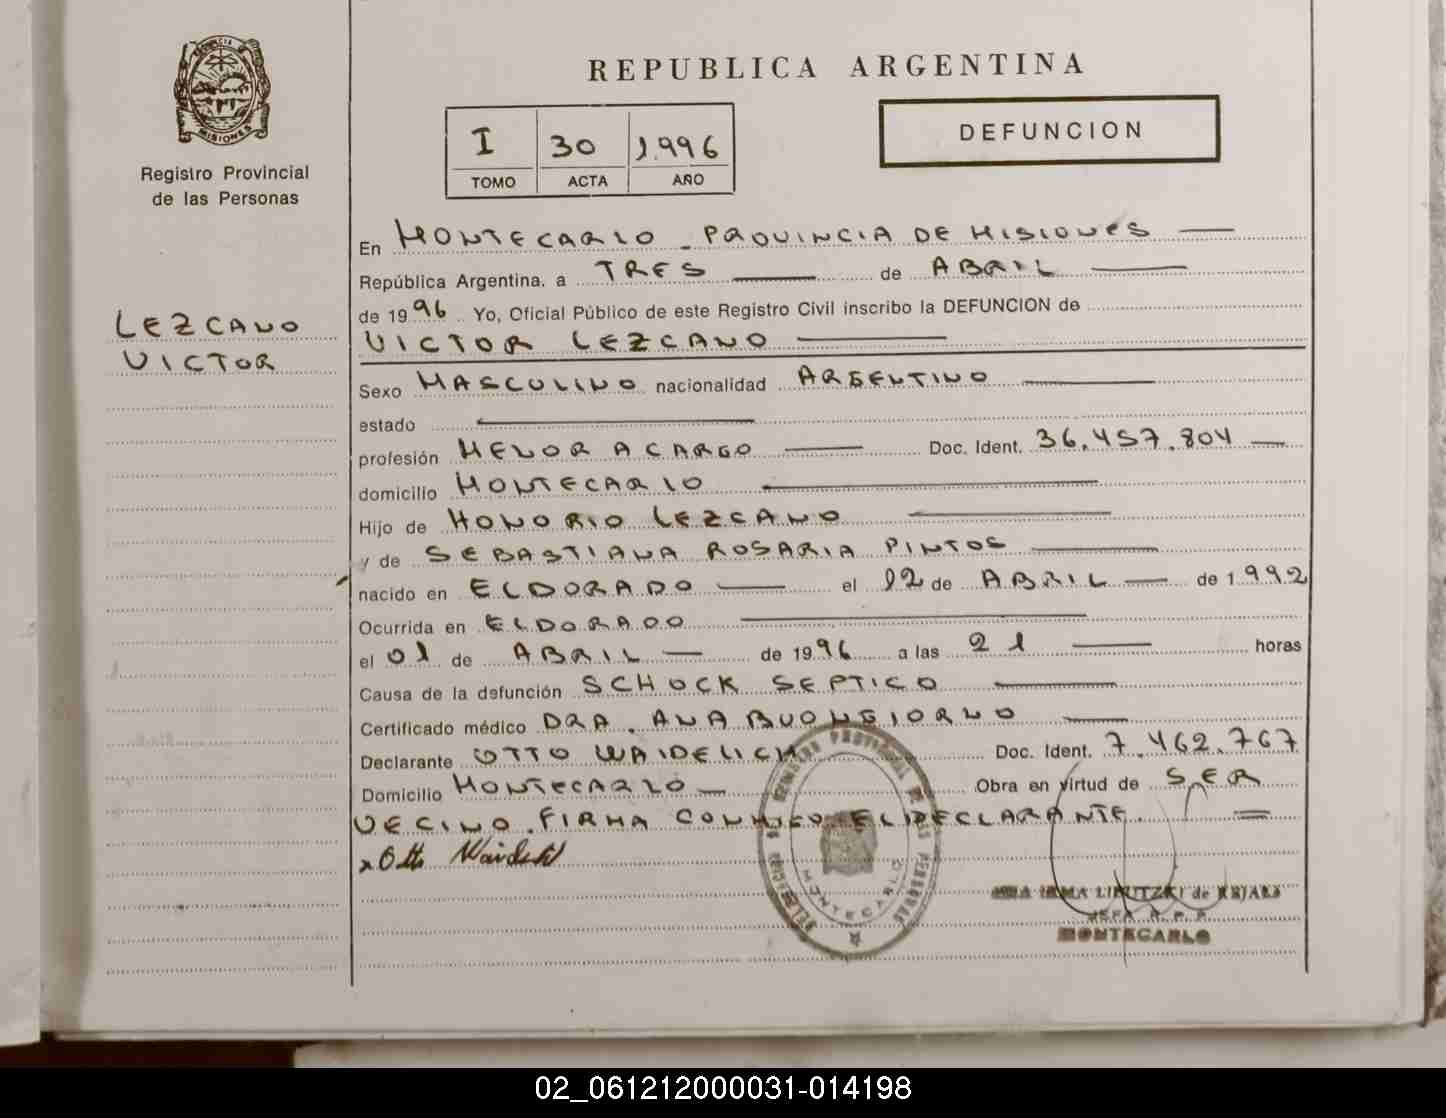 PROVINCIA DE
MISIONES
Registro Provincial
de las Personas
LEZCANO
VICTOR
REPUBLICA ARGENTINA
I 30 1.996
TOMO ACTA AÑO
DEFUNCION
En MONTECARLO - PROVINCIA DE MISIONES
República Argentina. a TRES de ABRIL
de 1996 Yo, Oficial Público de este Registro Civil inscribo la DEFUNCION de
VICTOR LEZCANO
Sexo MASCULINO nacionalidad ARGENTINO
estado
profesión MENOR A CARGO Doc. Ident. 36.457.804
domicilio MONTECARLO
Hijo de HONORIO LEZCANO
y de SEBASTIANA ROSARIA PINTOS
nacido en ELDORADO el 12 de ABRIL de 1.992
Ocurrida en ELDORADO
el 01 de ABRIL de 1996 a las 21 horas
Causa de la defunción SCHOCK SEPTICO
Certificado médico DRA. ANA BUONGIORNO
Declarante OTTO WAIDELICH Doc. Ident. 7.462.767
Domicilio MONTECARLO Obra en virtud de SER
VECINO. FIRMA CONMIGO EL DECLARANTE.
x Otto Waidelich
REGISTRO PROVINCIAL DE LAS PERSONAS
MONTECARLO
IRMA LIPUTZKI de
JEFA R. P. P.
MONTECARLO
02_061212000031-014198